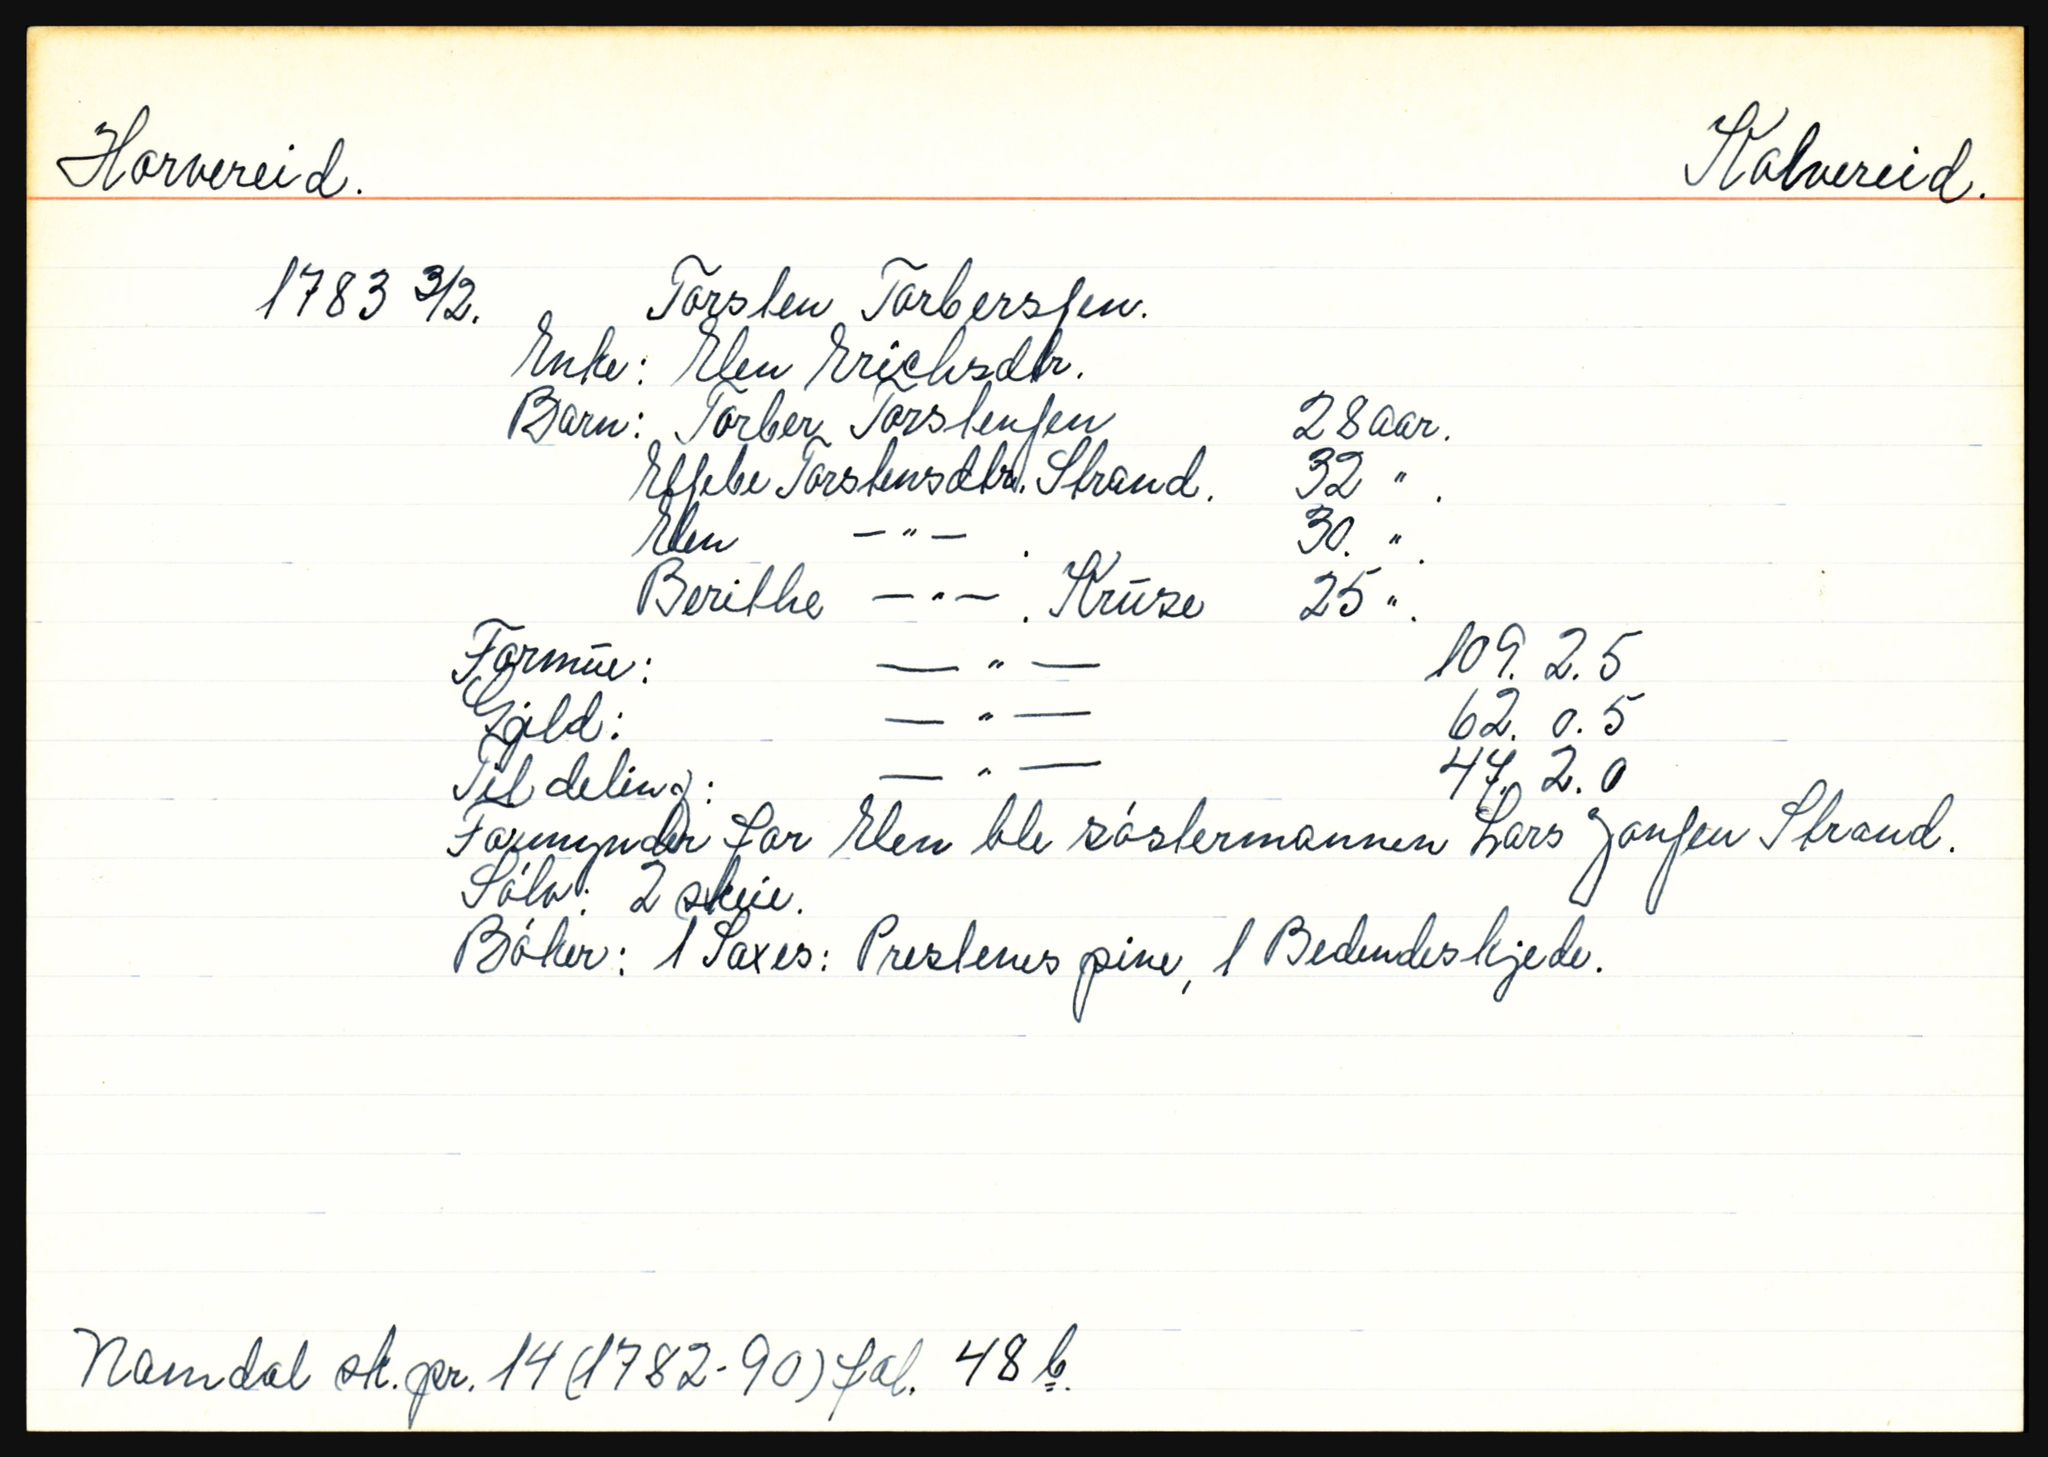 Horvereid. Kolvereid.
1783 3/2. Torsten Torbersſen.
Enke: Elen Erichsdtr.
Barn: Torber Torstenſen 28 aar.
Torstensdtr. Strand. 32 ".
Elen —"— . 30. ".
Berithe —"— . Krūse 25 ".
Formūe: — " — 109. 2. 5
Gjæld: — " — 62. 0. 5
Til deling: — " — 47. 2. 0
Formynder for Elen ble söstermannen Lars Jonſen Strand.
Sölv: 2 skeie.
Böker: 1 Saxes: Prestenes pine, 1 Bedendeskjede.
Namdal sk. pr. 14 (1782-90) fol. 48 b.